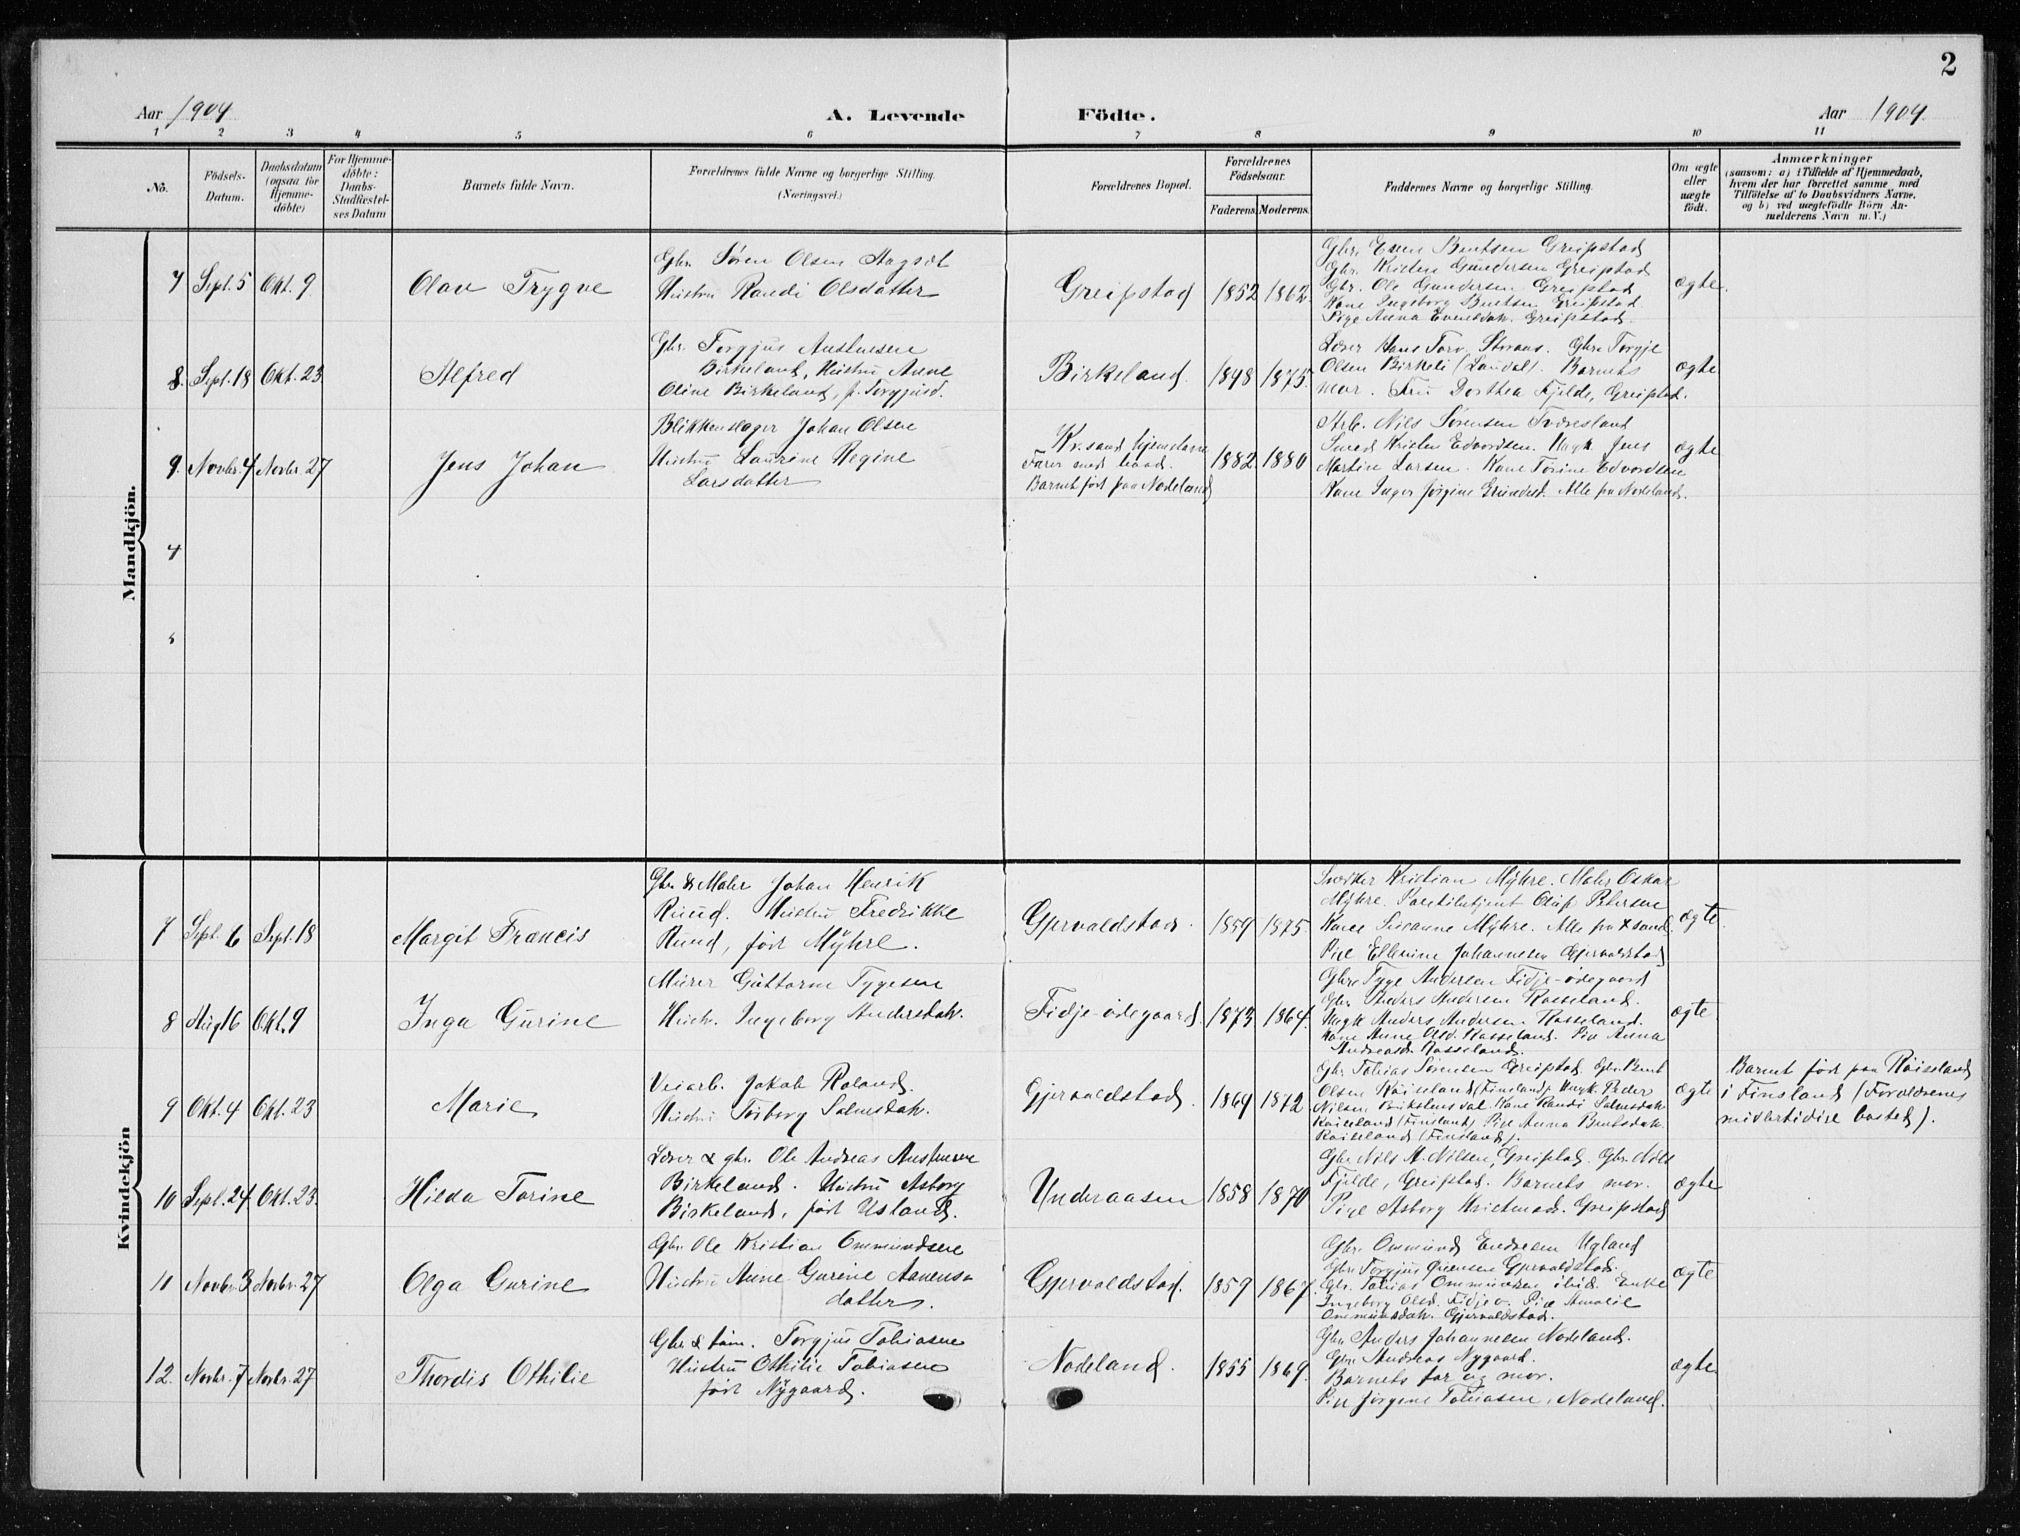 2
Aar 1904
A. Levende
Födte.
Aar 1904.
1 2 3 4 5 6 7 8 9 10 11
No.
Födsels-
Datum.
Daabsdatum
(ogsaa for
Hjemme-
döbte)
For Hjemme-
döbte:
Daabs-
Stadfæstel-
ses Datum
Barnets fulde Navn.
Forældrenes fulde Navne og borgerlige Stilling.
(Næringsvei.)
Forældrenes Bopæl.
Forældrenes
Födselsaar.
Faderens.
Moderens.
Faddernes Navne og borgerlige Stilling.
Om ægte
eller
uægte
födt.
Anmærkninger
(saasom: a) i Tilfælde af Hjemmedaab,
hvem der har forrettet samme med
Tilföielse af to Daabsvidners Navne,
og b) ved uægtefödte Börn An-
melderens Navn m. V.)
Mandkjön.
7 Sept. 5 Okt. 9 Olav Trygve
Gbr. Søren Olsen
Hustru Randi Olsdatter
Greipstad 1852 1862
Gbr. Even Bentsen Greipstad
Gbr. Kristen Gundersen Greipstad
Gbr. Ole Gundersen Greipstad
Kone Ingeborg Bentsen Greipstad
Pige Anna Evensdatr. Greipstad
ægte.
8. Sept. 18 Okt. 23 Alfred
Gbr. Torgjus
Birkeland, Hustru Anne
Oline Birkeland, f. Torgjusd.
Birkeland. 1848 1875.
Lærer Hans Torv. Gbr. Torgje
Olsen Birkeli (Laudal). Barnets
mor. Fru Dorthea Fjelde, Greipstad.
ægte
9. Novbr. 4 Novbr. 27 Jens Johan
Blikkenslager Johan Olsen
Hustru Laurine Regine
Larsdatter
Kr.sand hjemstavn
Farer med baad.
Barnet født paa Nodeland
1882. 1880
Arb. Nils Sørensen Tveresland
Smed Kristen Edvardsen. Ungk. Jens
Martin Larsen. Kone Torine Edvardsen
Kone Inger Jørgine Alle fra Nodeland.
ægte
4
Kvindekjön
7 Sept. 6 Sept. 18 Margit Francis
Gbr. & Maler Johan Henrik
Ruud. Hustru Fredrikke
Ruud, født Mÿhre.
Gjervoldstad. 1859 1875.
Snedker Kristian Mÿhre. Maler Oskar
Mÿhre. Olaf Petersen
Kone Susanne Mÿhre. Alle fra Xsand.
Pige Ellenine Johannesen Gjervoldstad
ægte
8 Aug 16 Okt. 9 Inga Gurine
Murer Guttorm Tygesen
Hustr. Ingeborg Andersdatr.
Fidje-ødegaard. 1873 1864.
Gbr. Tyge Andersen Fidje-ødegaard
Gbr. Anders Andersen Rosseland.
Ungk. Anders Andersen. Rosseland.
Kone Anne Olsd. Rosseland. Pige Anna
Andreasd. Rosseland.
ægte
9 Okt. 4 Okt. 23 Marie
Veiarb. Jakob Roland.
Hustru Torborg Salvesdatr.
Gjervoldstad. 1869 1872
Gbr. Tobias Sørensen Greipstad. Gbr. Bent
Olsen Røiseland (Finsland). Ungk. Peder
Nilsen Kone Randi Salvesdatr.
Røiseland (Finsland) Pige Anna Bentsdatr.
Røiseland (Finsland).
ægte
Barnet født paa Røisseland
i Finsland (Forældrenes
midlertidige bosted).
10 Sept. 24 Okt. 23. Hilda Torine
Lærer & gbr. Ole Andreas
Birkeland. Hustru Asborg
Birkeland, født Usland.
Underaasen 1858 1870
Gbr. Nils A. Nilsen, Greipstad. Gbr. Nils
Fjelde, Greipstad. Barnets mor.
Pige Asborg Greipstad
ægte
11 Novbr. 3 Novbr. 27 Olga Gurine
Gbr. Ole Kristian Ommundsen
Hustru Anne Gurine Aanens-
datter.
Gjervoldstad. 1857 1867.
Gbr. Ommund Endresen Ugland
Gbr. Torgjus Gjervoldstad.
Gbr. Tobias Ommundsen ibid. Enke
Ingeborg Olsd. Fidje. Pige Amalie
Ommundsdatr. Gjervoldstad.
ægte
12. Novbr. 7 Novbr. 27 Thordis Othilie
Gbr. & tøm. Torgjus Tobiasen
Hustru Othilie Tobiasen
født Nÿgaard.
Nodeland. 1855 1869.
Gbr. Anders Johannesen Nodeland.
Gbr. Andreas Nygaard.
Barnets far og mor.
Pige Jørgine Tobiasen, Nodeland.
ægte